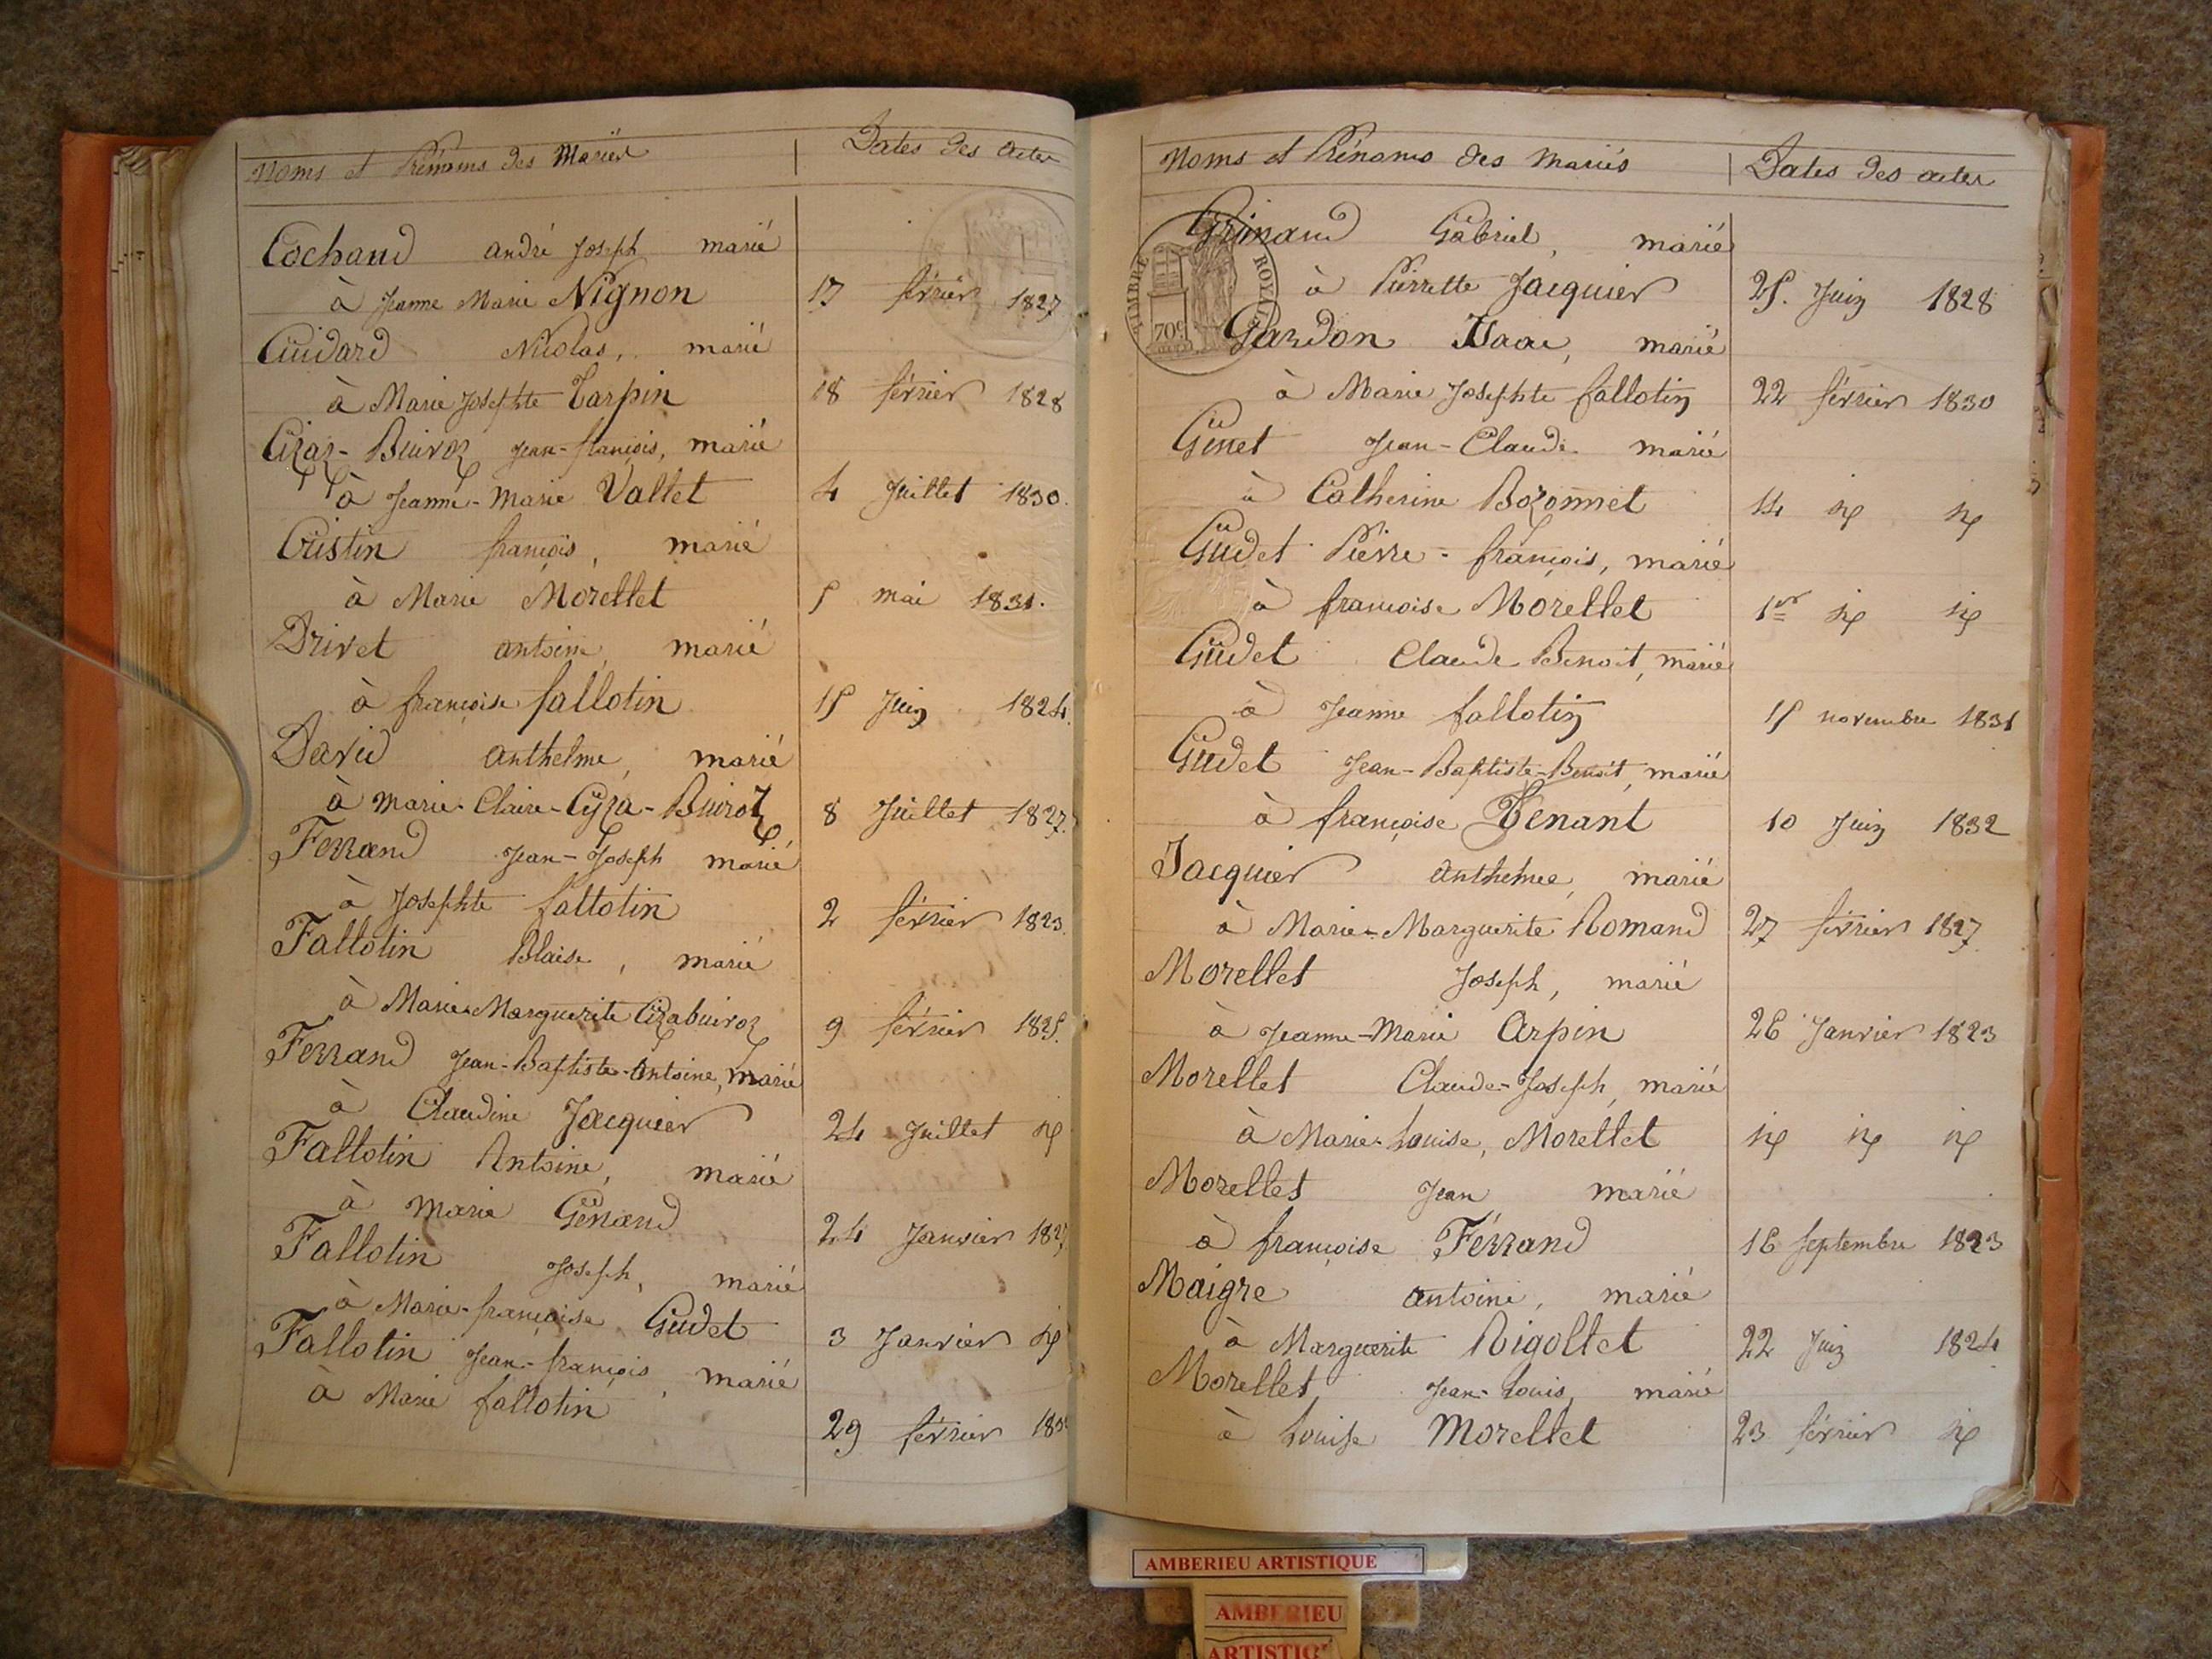 Noms et Prénoms des Mariés Dates des actes
Cochand andré Joseph marié
à Jeanne Marie Nignon 17 février 1827
Guidard Nicolas, marié
à Marie Josephte Tarpin 18 février 1828
Cizaz-Buiroz Jean-françois, marié
à Jeanne-Marie Vallet 4 Juillet 1830.
Cristin françois, marié
à Marie Morellet 5 mai 1831.
Drivet antoine, marié
à françoise fallotin 15 Juin 1824.
David anthelme, marié
à Marie-Claire-Cyza-Buiroz 8 Juillet 1827.
Ferrand Jean-Joseph marié
à Josephte fallotin 2 février 1823.
Fallotin Blaise, marié
à Marie Marguerite Cizabuiroz 9 février 1825.
Ferrand Jean-Baptiste-Antoine, marié
à Claudine Jacquier 24 Juillet id
Fallotin Antoine, marié
à Marie Génand 24 Janvier 1827
Fallotin Joseph, marié
à Marie-françoise Gudet 3 Janvier id
Fallotin Jean-françois, marié
à Marie fallotin 29 février
Noms et Prénoms des Mariés Dates des actes
Grimaud Gabriel, marié
à Pierrette Jacquier 25. Juin 1828
Gardon Isaac, marié
à Marie Josephte fallotin 22 février 1830
Genet Jean-Claude marié
à Catherine Bozonnet 14 id id
Gudet Pierre-françois, marié
à françoise Morellet 1er id id
Gudet Claude Benoit, marié
à Jeanne fallotin 15 novembre 1831
Gudet Jean-Baptiste-Benoit, marié
à françoise Tenant 10 Juin 1832
Jacquier anthelme, marié
à Marie-Marguerite Romand 27 février 1827
Morellet Joseph, marié
à Jeanne-Marie Arpin 26 Janvier 1823
Morellet Claude-Joseph, marié
à Marie-Louise, Morellet id id id
Morellet Jean marié
à françoise Férrand 16 Septembre 1823
Maigre antoine, marié
à Marguerite Rigollet 22 Juin 1824
Morellet Jean-Louis, marié
à Louise Morellet 23 février id
TIMBRE ROYAL
70c
AMBERIEU ARTISTIQUE
AMBERIEU
ARTISTIQ